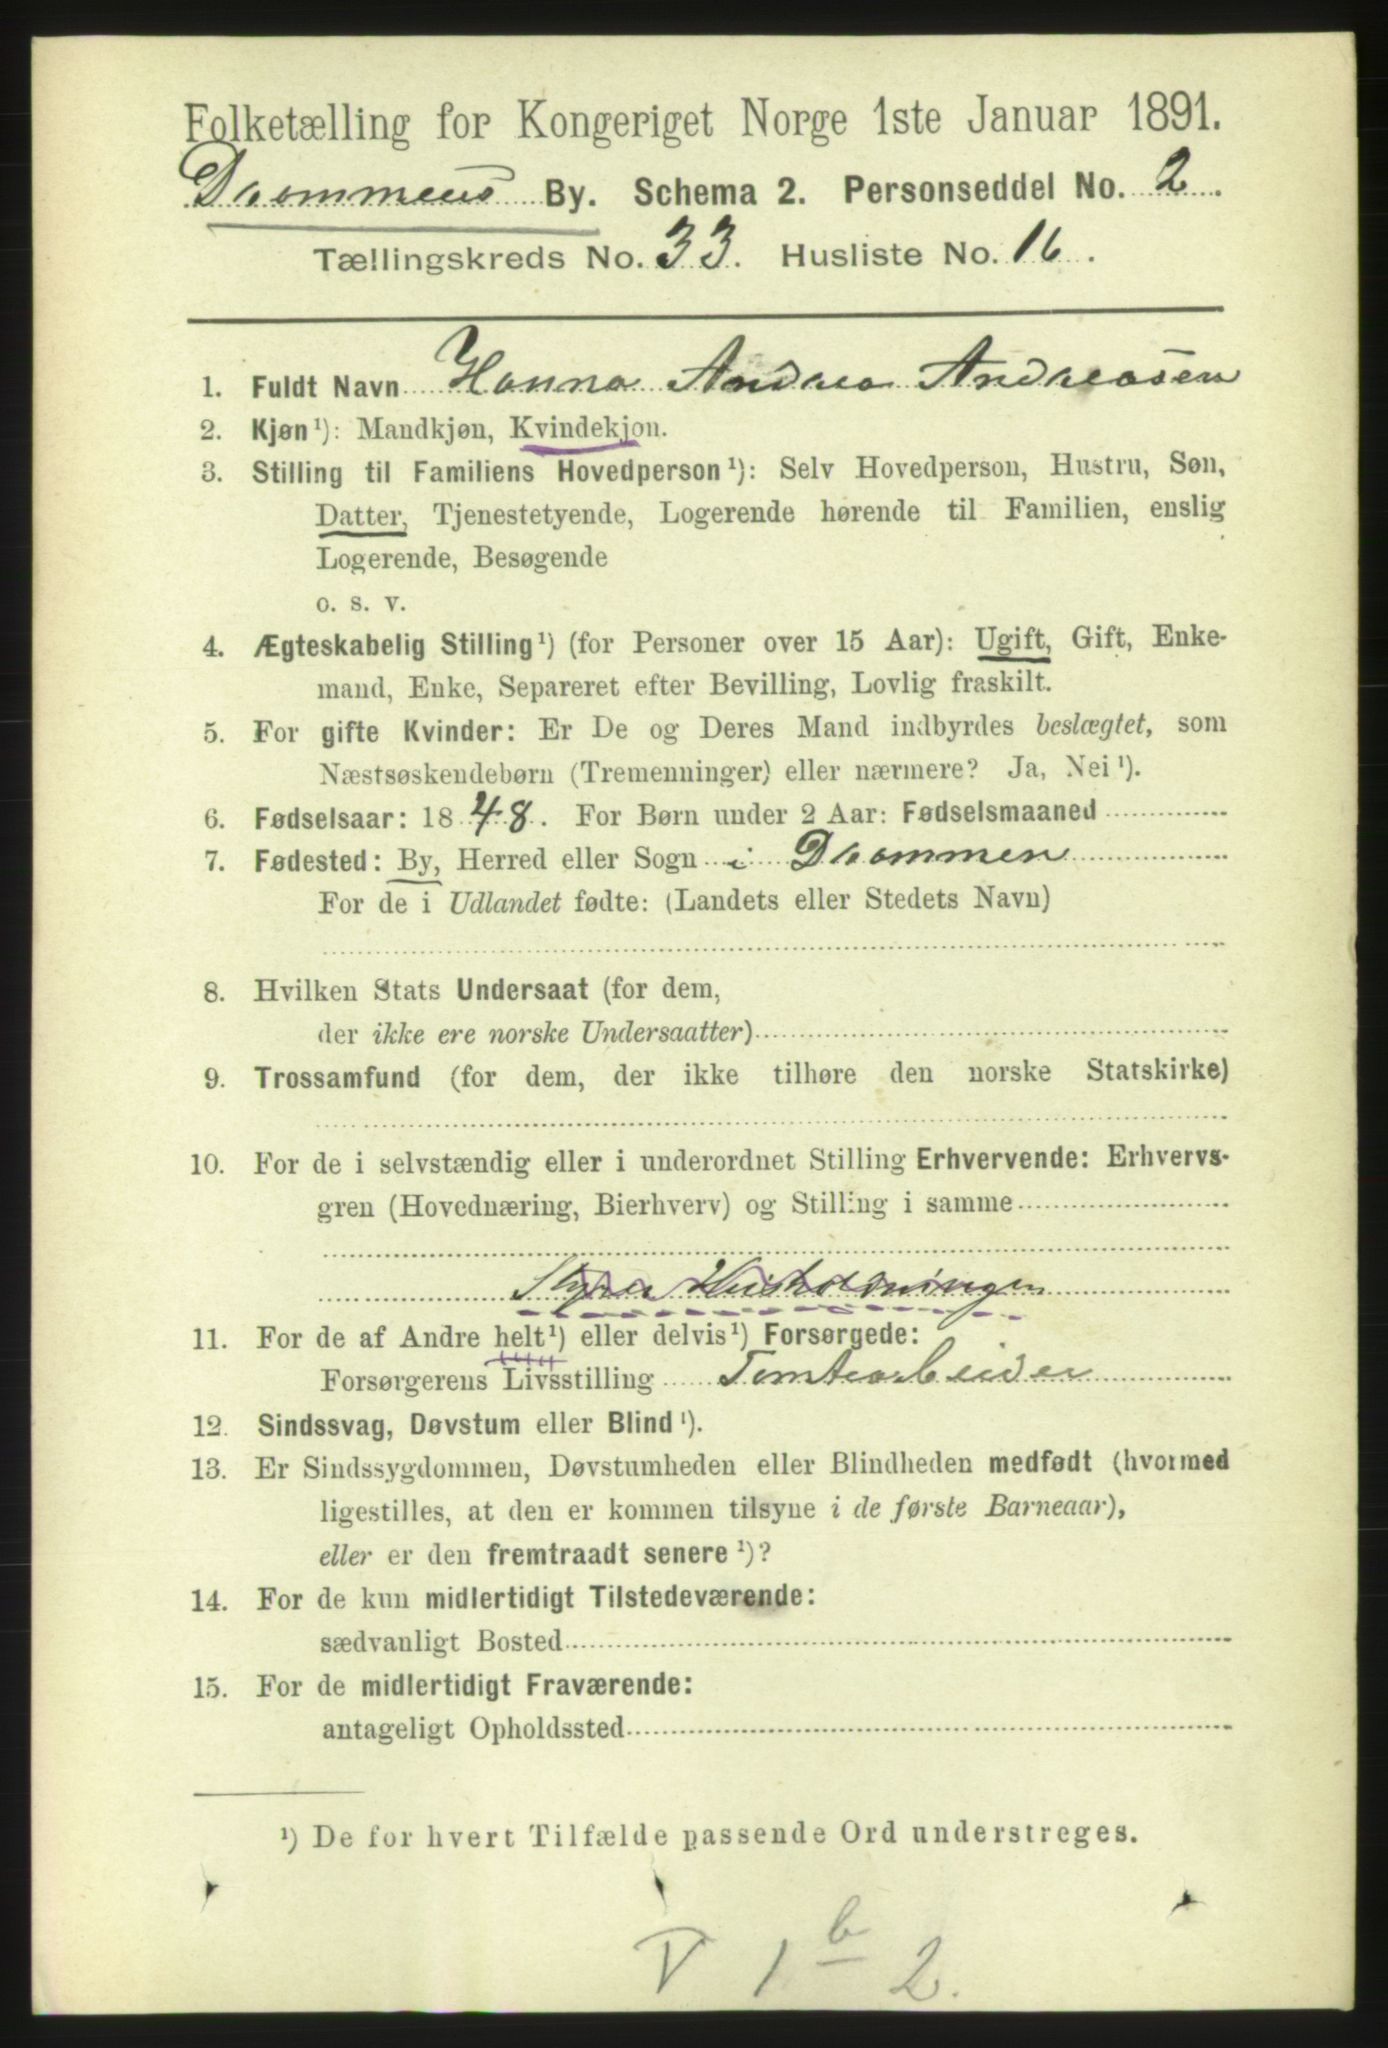 Folketælling for Kongeriget Norge 1ste Januar 1891.
Drammens By. Schema 2. Personseddel No. 2.
Tællingskreds No. 33. Husliste No. 16.
1. Fuldt Navn Hanna Andrea Andreasen
2. Kjøn¹): Mandkjøn, Kvindekjøn.
3. Stilling til Familiens Hovedperson¹): Selv Hovedperson, Hustru, Søn,
Datter, Tjenestetyende, Logerende hørende til Familien, enslig
Logerende, Besøgende
o. s. v.
4. Ægteskabelig Stilling¹) (for Personer over 15 Aar): Ugift, Gift, Enke-
mand, Enke, Separeret efter Bevilling, Lovlig fraskilt.
5. For gifte Kvinder: Er De og Deres Mand indbyrdes beslægtet, som
Næstsøskendebørn (Tremenninger) eller nærmere? Ja, Nei¹).
6. Fødselsaar: 1848. For Børn under 2 Aar: Fødselsmaaned
7. Fødested: By, Herred eller Sogn i Drammen
For de i Udlandet fødte: (Landets eller Stedets Navn)
8. Hvilken Stats Undersaat (for dem,
der ikke ere norske Undersaatter)
9. Trossamfund (for dem, der ikke tilhøre den norske Statskirke)
10. For de i selvstændig eller i underordnet Stilling Erhvervende: Erhvervs-
gren (Hovednæring, Bierhverv) og Stilling i samme
Styrer Husholdningen
11. For de af Andre helt¹) eller delvis¹) Forsørgede:
Forsørgerens Livsstilling Tomtearbeider
12. Sindssvag, Døvstum eller Blind¹).
13. Er Sindssygdommen, Døvstumheden eller Blindheden medfødt (hvormed
ligestilles, at den er kommen tilsyne i de første Barneaar),
eller er den fremtraadt senere¹)?
14. For de kun midlertidigt Tilstedeværende:
sædvanligt Bosted
15. For de midlertidigt Fraværende:
antageligt Opholdssted
¹) De for hvert Tilfælde passende Ord understreges.
V 1 b 2.